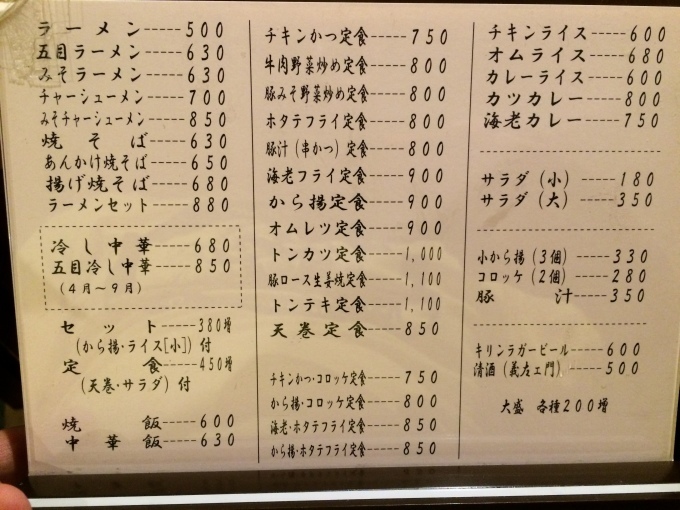 ラーメン-----500
五目ラーメン-----630
みそラーメン-----630
チャーシューメン-----700
みそチャーシューメン-----850
焼そば-----630
あんかけ焼そば-----650
揚げ焼そば-----680
ラーメンセット-----880
冷し中華-----680
五目冷し中華-----850
(4月〜9月)
セット-----380増
(から揚・ライス[小])付
定食-----450増
(天巻・サラダ)付
焼飯-----600
中華飯-----630
チキンかつ定食-----750
牛肉野菜炒め定食-----800
豚みそ野菜炒め定食-----800
ホタテフライ定食-----800
豚汁(串かつ)定食-----800
海老フライ定食-----900
から揚定食-----900
オムレツ定食-----900
トンカツ定食-----1,000
豚ロース生姜焼定食-----1,100
トンテキ定食-----1,100
天巻定食-----850
チキンかつ・コロッケ定食-----750
から揚・コロッケ定食-----800
海老・ホタテフライ定食-----850
から揚・ホタテフライ定食-----850
チキンライス-----600
オムライス-----680
カレーライス-----600
カツカレー-----800
海老カレー-----750
サラダ(小)-----180
サラダ(大)-----350
小から揚(3個)-----330
コロッケ(2個)-----280
豚汁-----350
キリンラガービール-----600
清酒(義左ェ門)-----500
大盛 各種200増